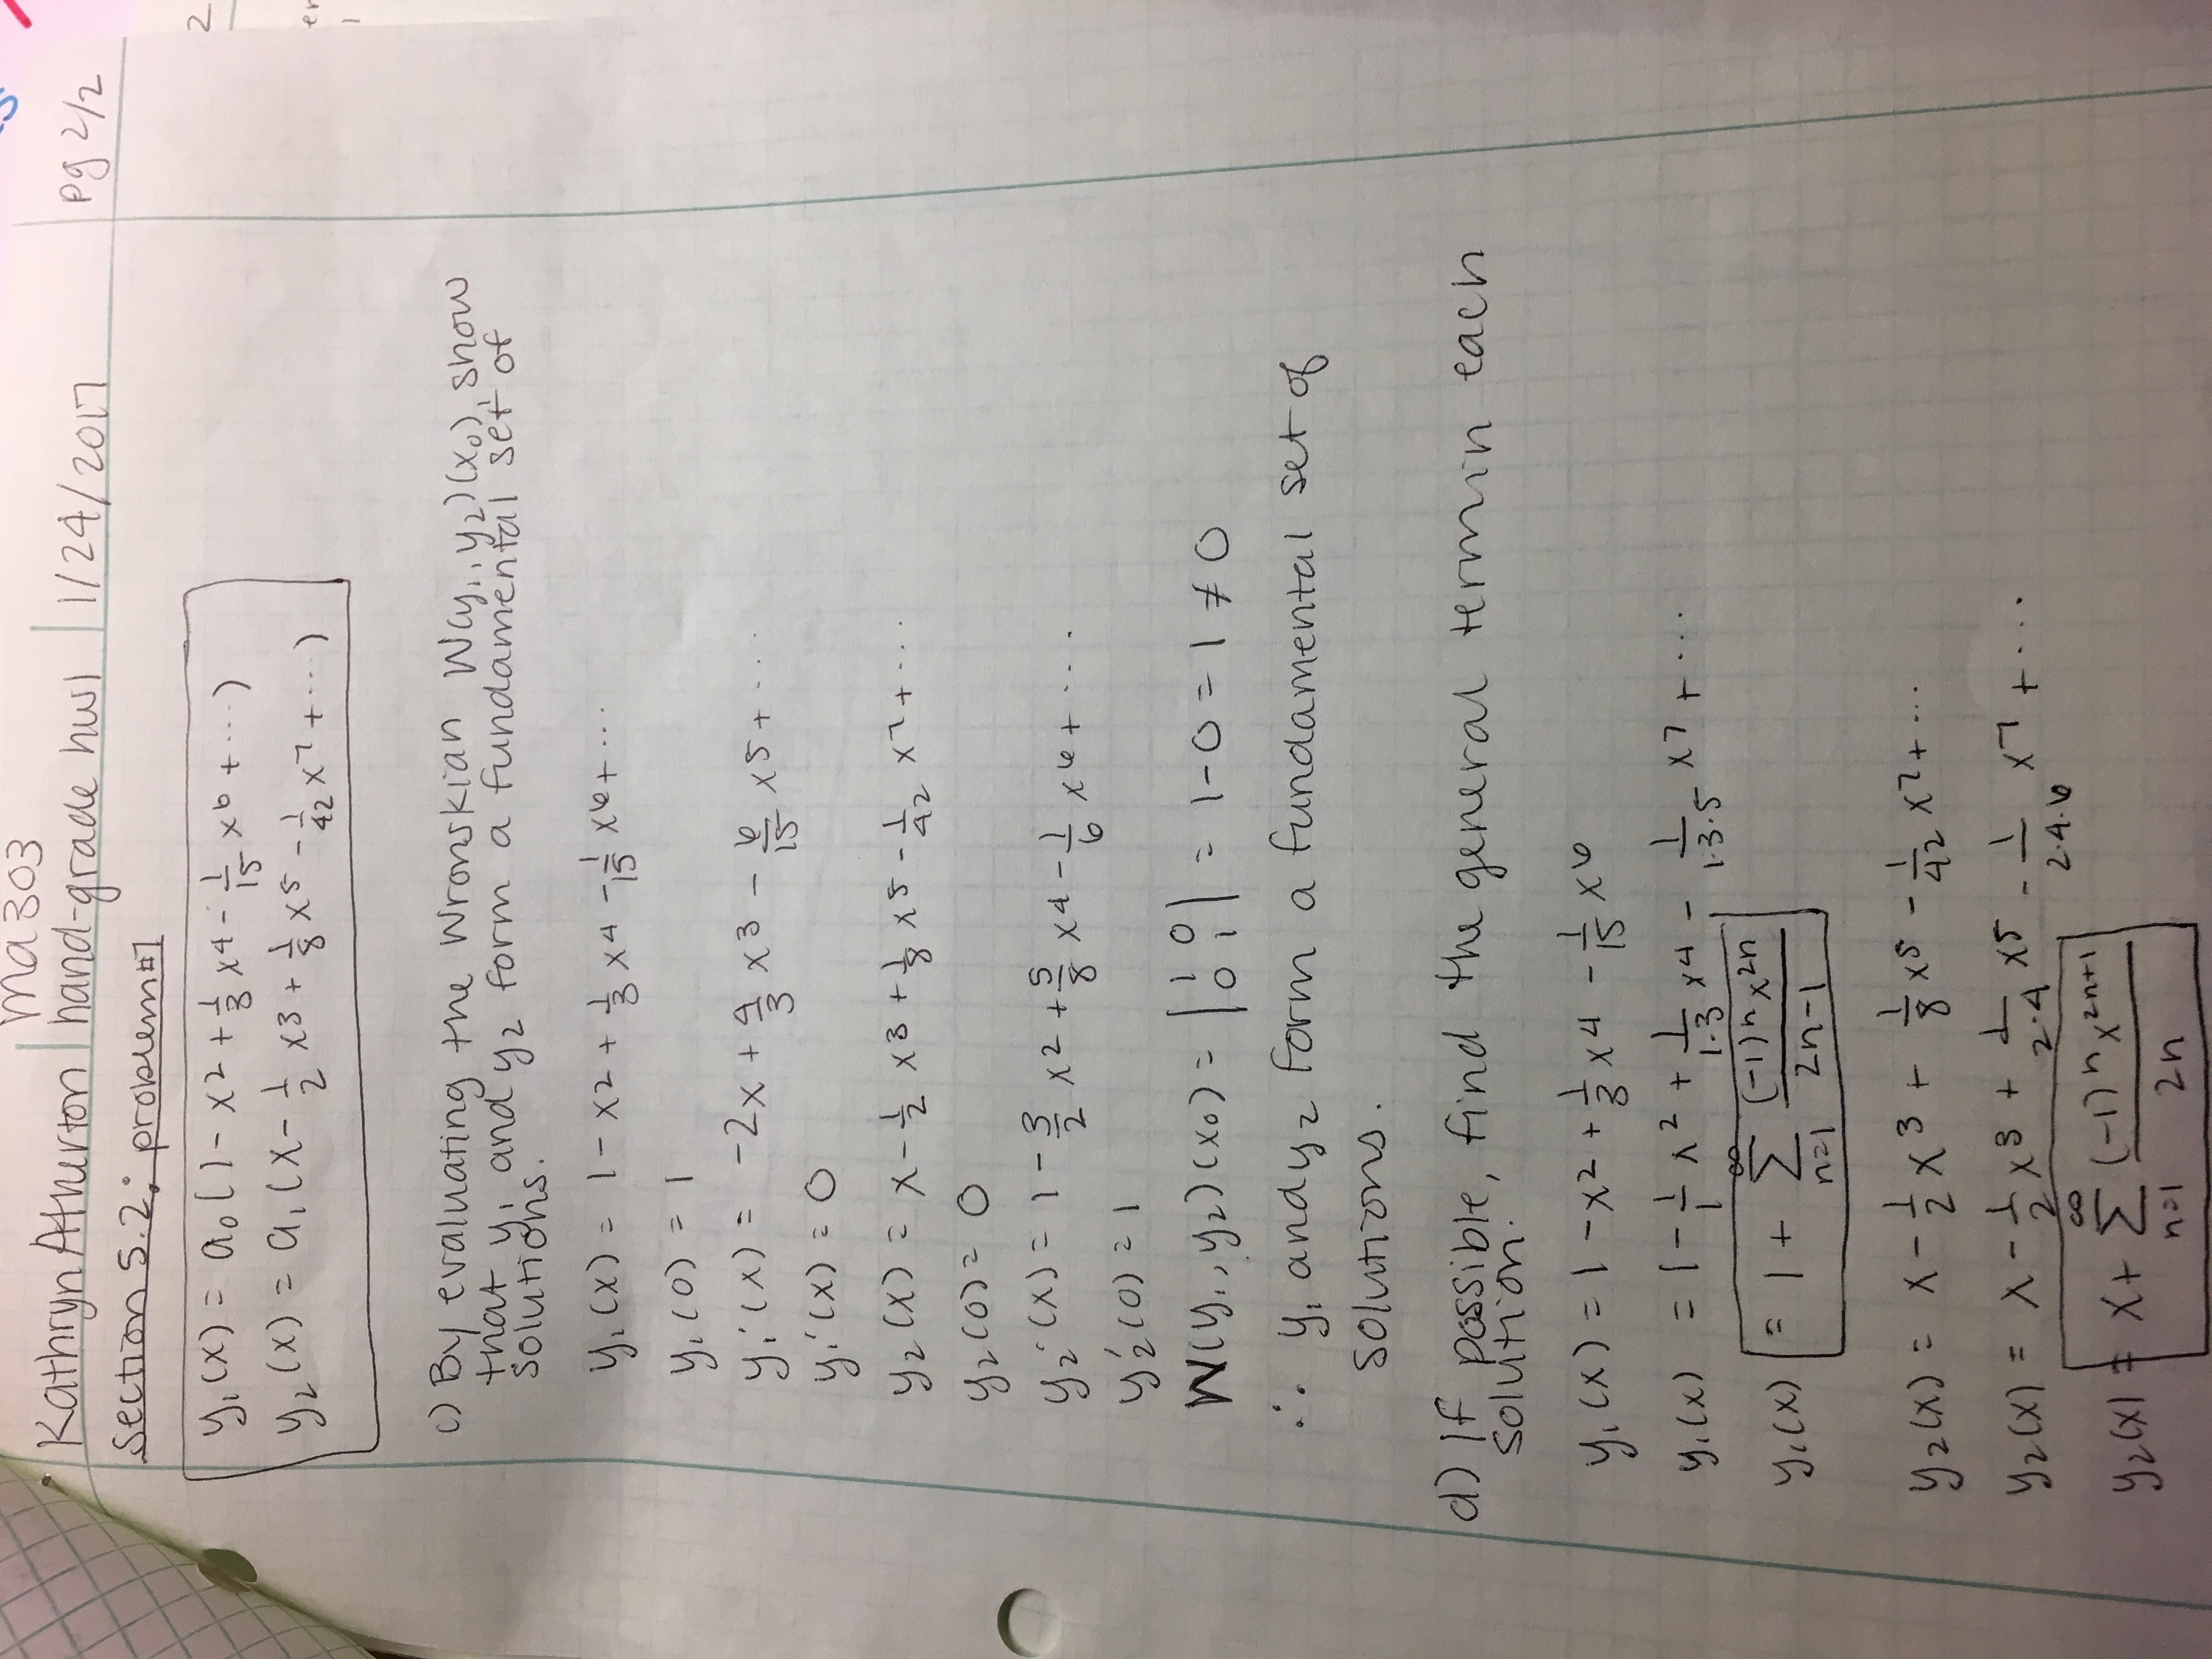 Kathryn Atherton | ma303 hand-grade hw1 | 1/24/2017 | pg 2/2
Section 5.2: problem #7
y₁(x) = a₀(1 - x2 + 1/3 x4 - 1/15 x6 + ...)
y₂(x) = a₁(x - 1/2 x3 + 1/8 x5 - 1/42 x7 + ...)
c) By evaluating the Wronskian W(y₁, y₂)(x₀), show
that y₁ and y₂ form a fundamental set of
solutions.
y₁(x) = 1 - x2 + 1/3 x4 - 1/15 x6 + ...
y₁(0) = 1
y₁'(x) = -2x + 4/3 x3 - 6/15 x5 + ...
y₁'(x) = 0
y₂(x) = x - 1/2 x3 + 1/8 x5 - 1/42 x7 + ...
y₂(0) = 0
y₂'(x) = 1 - 3/2 x2 + 5/8 x4 - 1/6 x6 + ...
y₂'(0) = 1
W(y₁, y₂)(x₀) = |1 0; 0 1| = 1 - 0 = 1 ≠ 0
∴ y₁ and y₂ form a fundamental set of
solutions.
d) If possible, find the general term in each
solution.
y₁(x) = 1 - x2 + 1/3 x4 - 1/15 x6
y₁(x) = 1 - 1/1 x² + 1/(1·3) x4 - 1/(1·3·5) x7 + ...
y₁(x) = 1 + ∑_{n=1}^{∞} (-1)ⁿ x²ⁿ / (2n-1)
y₂(x) = x - 1/2 x3 + 1/8 x5 - 1/42 x7 + ...
y₂(x) = x - 1/2 x3 + 1/(2·4) x5 - 1/(2·4·6) x7 + ...
y₂(x) = x + ∑_{n=1}^{∞} (-1)ⁿ x²ⁿ⁺¹ / 2n